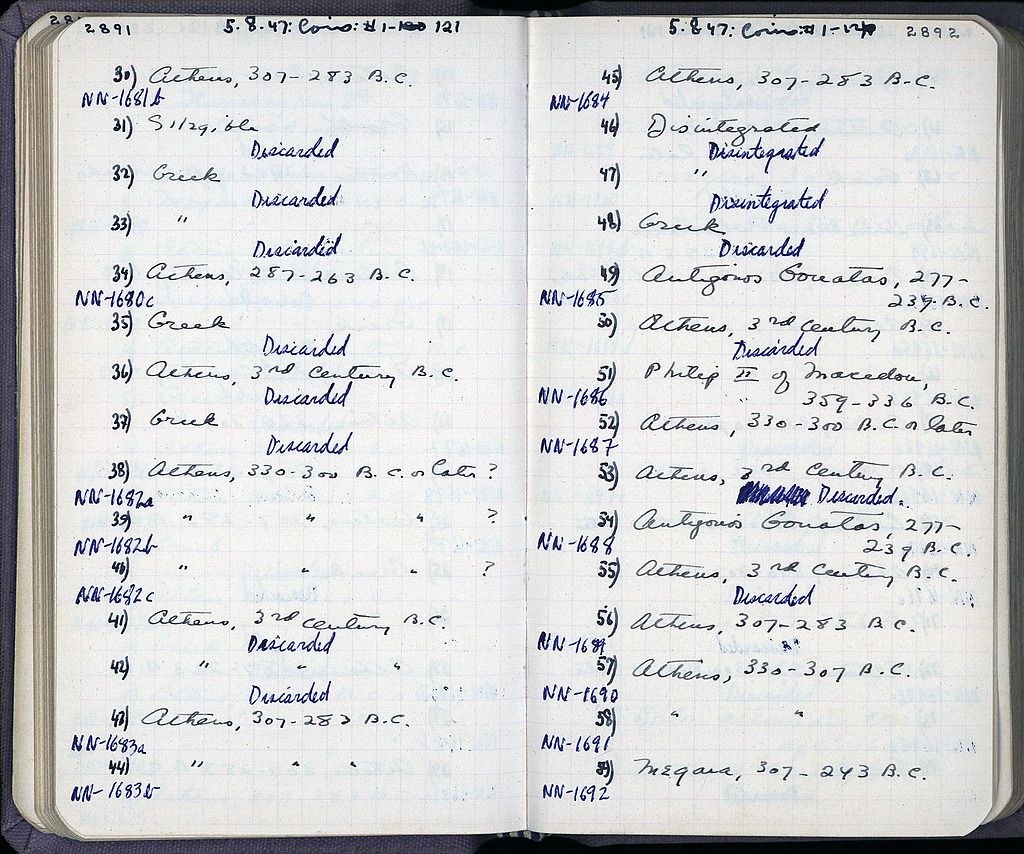 2891 5.8.47: Coins: #1-121
30) Athens, 307-283 B.C.
NN-1681b
31) Illegible
Discarded
32) Greek
Discarded
33) "
Discarded
34) Athens, 287-263 B.C.
NN-1680c
35) Greek
Discarded
36) Athens, 3rd Century B.C.
Discarded
37) Greek
Discarded
38) Athens, 330-300 B.C. or later ?
NN-1682a
39) " " " ?
NN-1682b
40) " " " ?
NN-1682c
41) Athens, 3rd Century B.C.
Discarded
42) " " "
Discarded
43) Athens, 307-283 B.C.
NN-1683a
44) " " "
NN-1683b
5.8.47: Coins: #1-121 2892
45) Athens, 307-283 B.C.
NN-1684
46) Disintegrated
Disintegrated
47) "
Disintegrated
48) Greek
Discarded
49) Antigonos Gonatas, 277-
NN-1685 239 B.C.
50) Athens, 3rd Century B.C.
Discarded
51) Philip II of Macedon,
NN-1686 359-336 B.C.
52) Athens, 330-300 B.C. or later
NN-1687
53) Athens, 3rd Century B.C.
Discarded.
54) Antigonos Gonatas, 277-
NN-1688 239 B.C.
55) Athens, 3rd Century B.C.
Discarded
56) Athens, 307-283 B.C.
NN-1689
57) Athens, 330-307 B.C.
NN-1690
58) " "
NN-1691
59) Megara, 307-243 B.C.
NN-1692